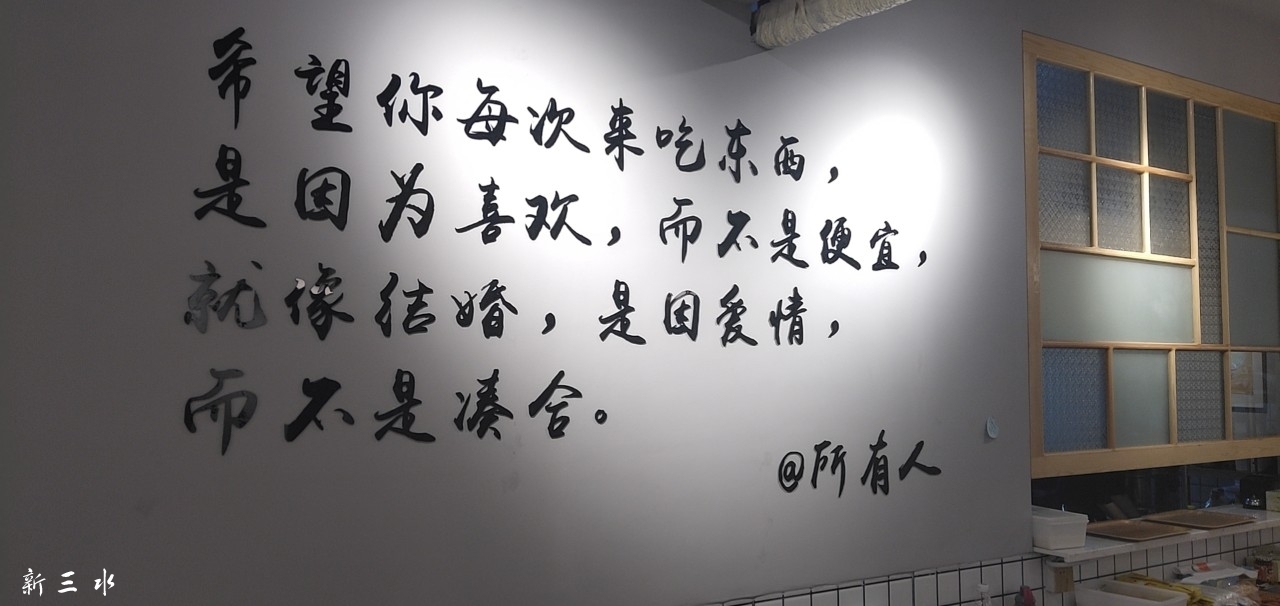 希望你每次来吃东西，
是因为喜欢，而不是便宜，
就像结婚，是因爱情，
而不是凑合。
@所有人
新三水